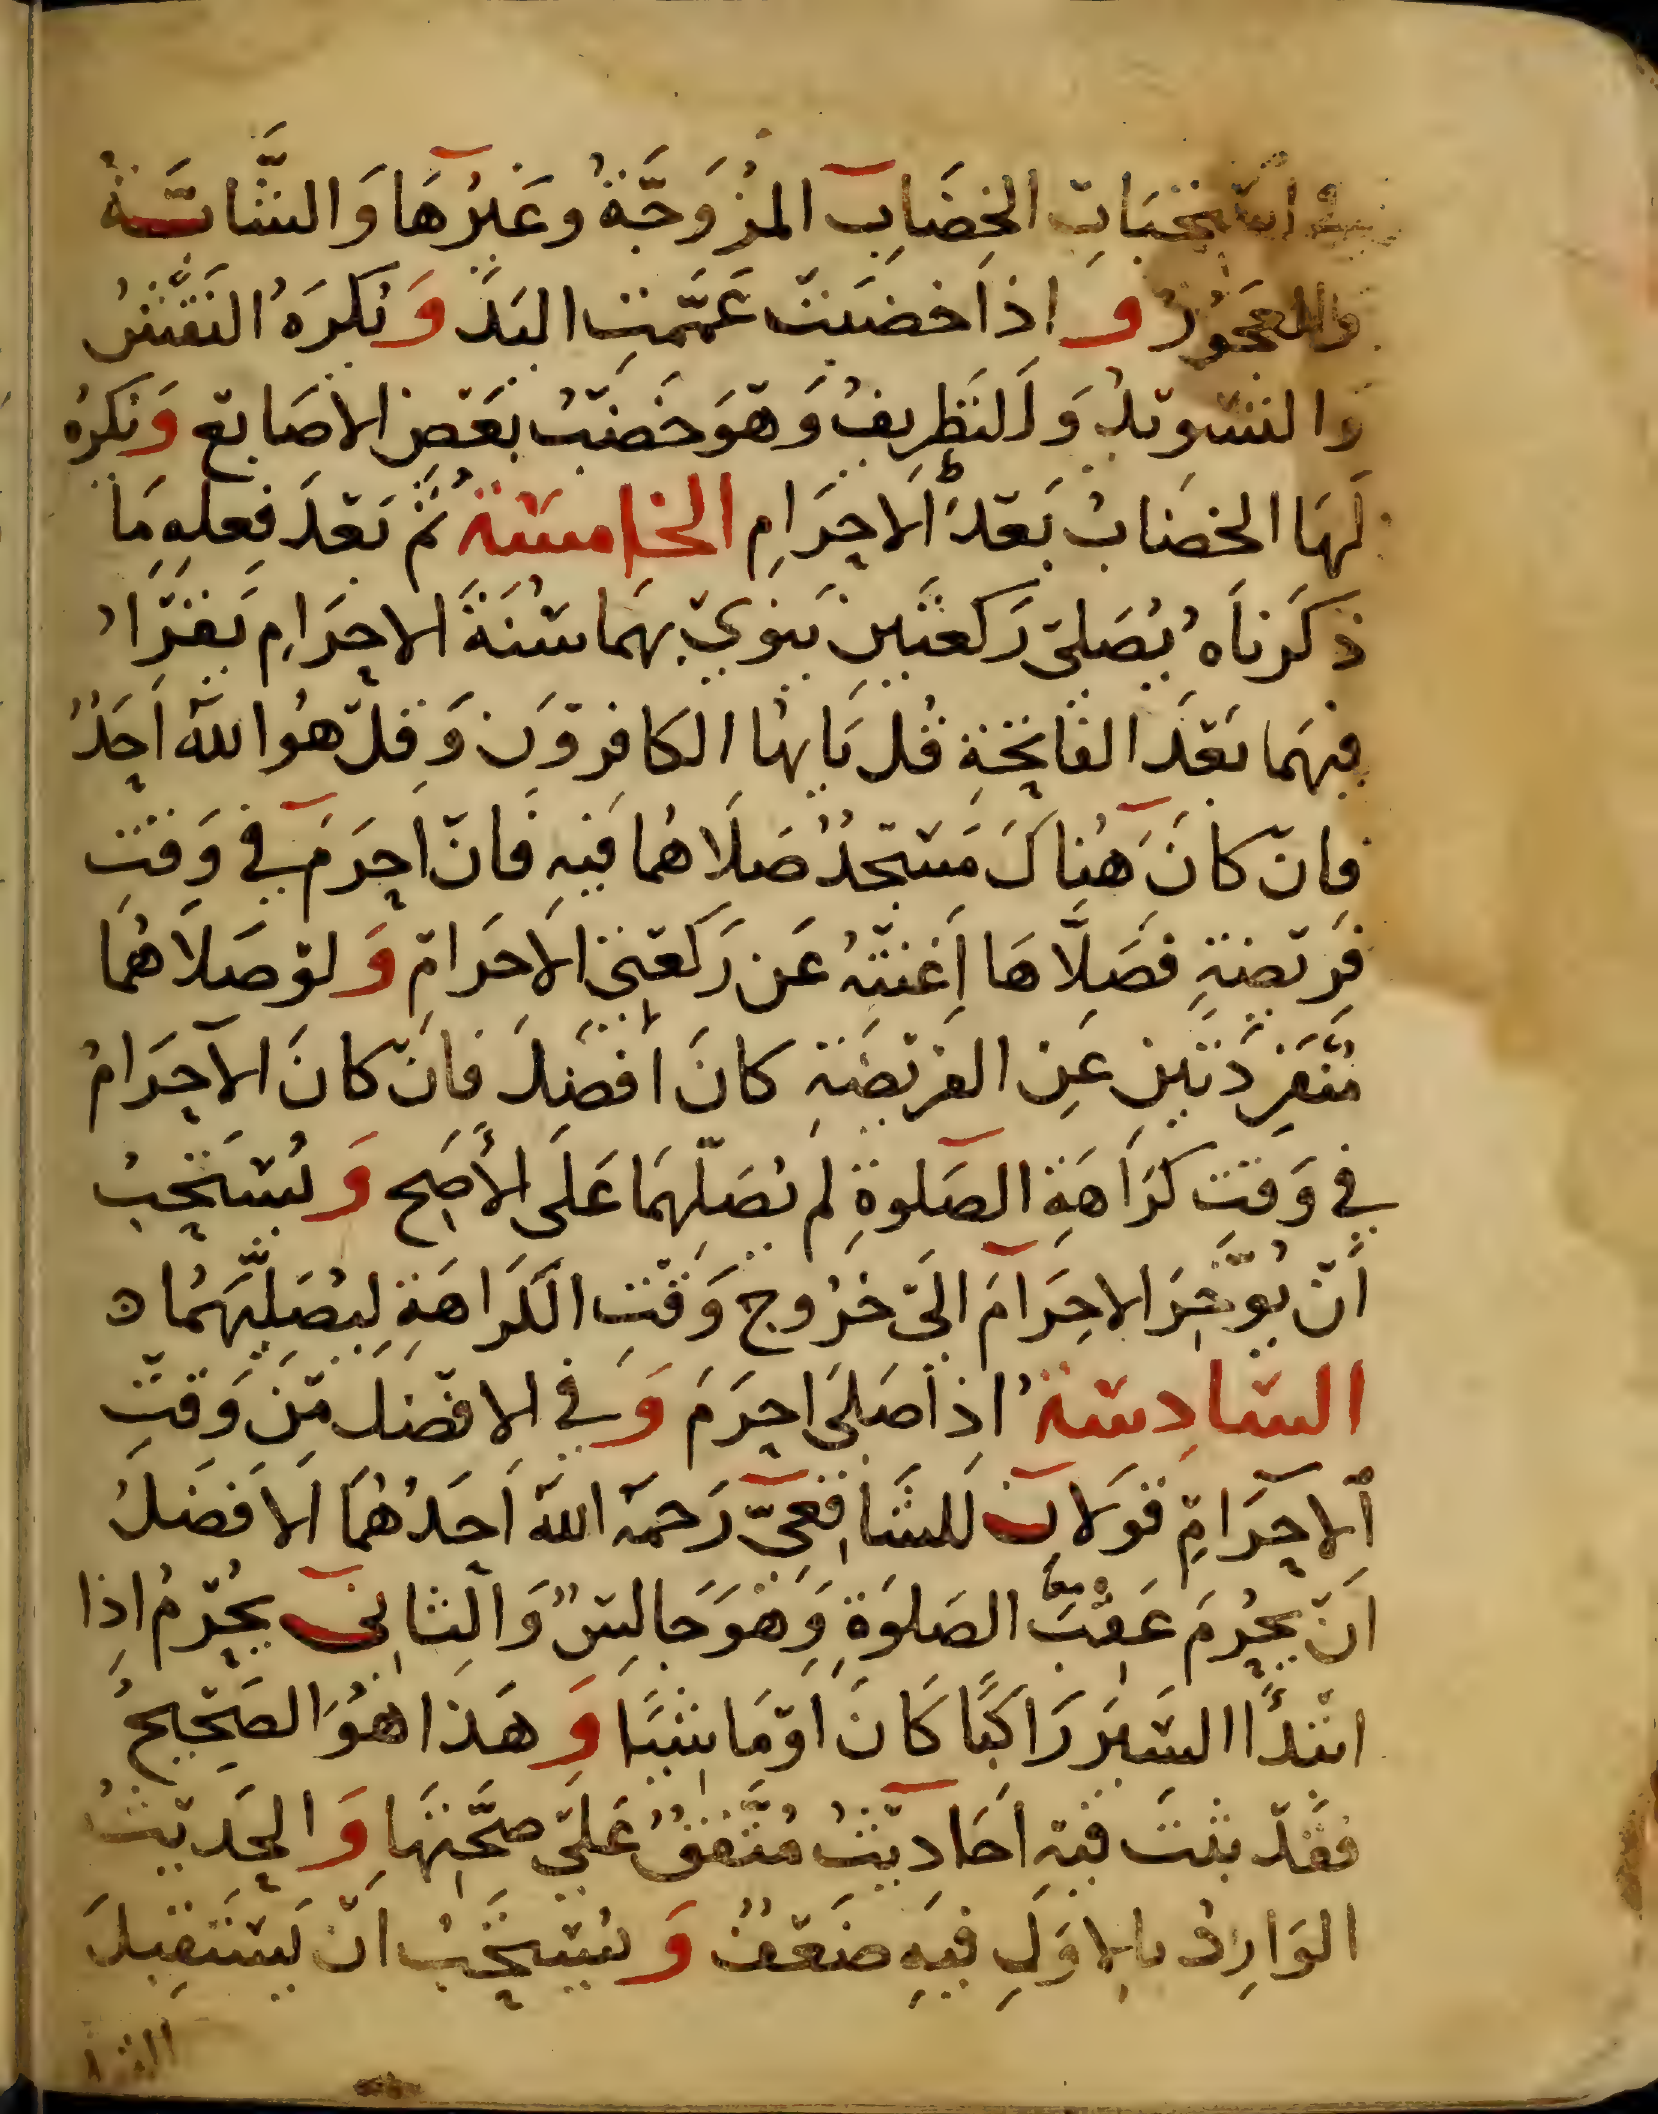 في استحباب الخضاب المزوجة وغيرها والشابة
والعجوز واذا خضبت عممت اليد ونكره النقش
والتسويد والتطريف وهو خضب بعض الاصابع ونكره
لها الخضاب بعد الاحرام الخامسة ثم بعد فعله ما
ذكرناه يصلي ركعتين ينوي بهما سنة الاحرام يقرا
فيهما بعد الفاتحة قل يايها الكافرون وقل هو الله احد
فان كان هناك مسجد صلاهما فيه فان احرم في وقت
فريضة فصلاها اغنته عن ركعتي الاحرام ولو صلاهما
منفردتين عن الفريضة كان افضل فان كان الاحرام
في وقت كراهة الصلوة لم يصلهما على الأصح ويستحب
أن يؤخر الاحرام الى خروج وقت الكراهة ليصليهما ه
السادسة اذا صلى احرم وفي الافضل من وقت
الاحرام قولان للشافعي رحمه الله احدهما الافضل
ان يحرم عقب الصلوة وهو جالس والثاني يحرم اذا
ابتدأ السير راكبا كان او ماشيا وهذا هو الصحيح
فقد ثبت فيه احاديث متفق على صحتها والحديث
الوارد بالاول فيه ضعف ويستحب ان يستقبل